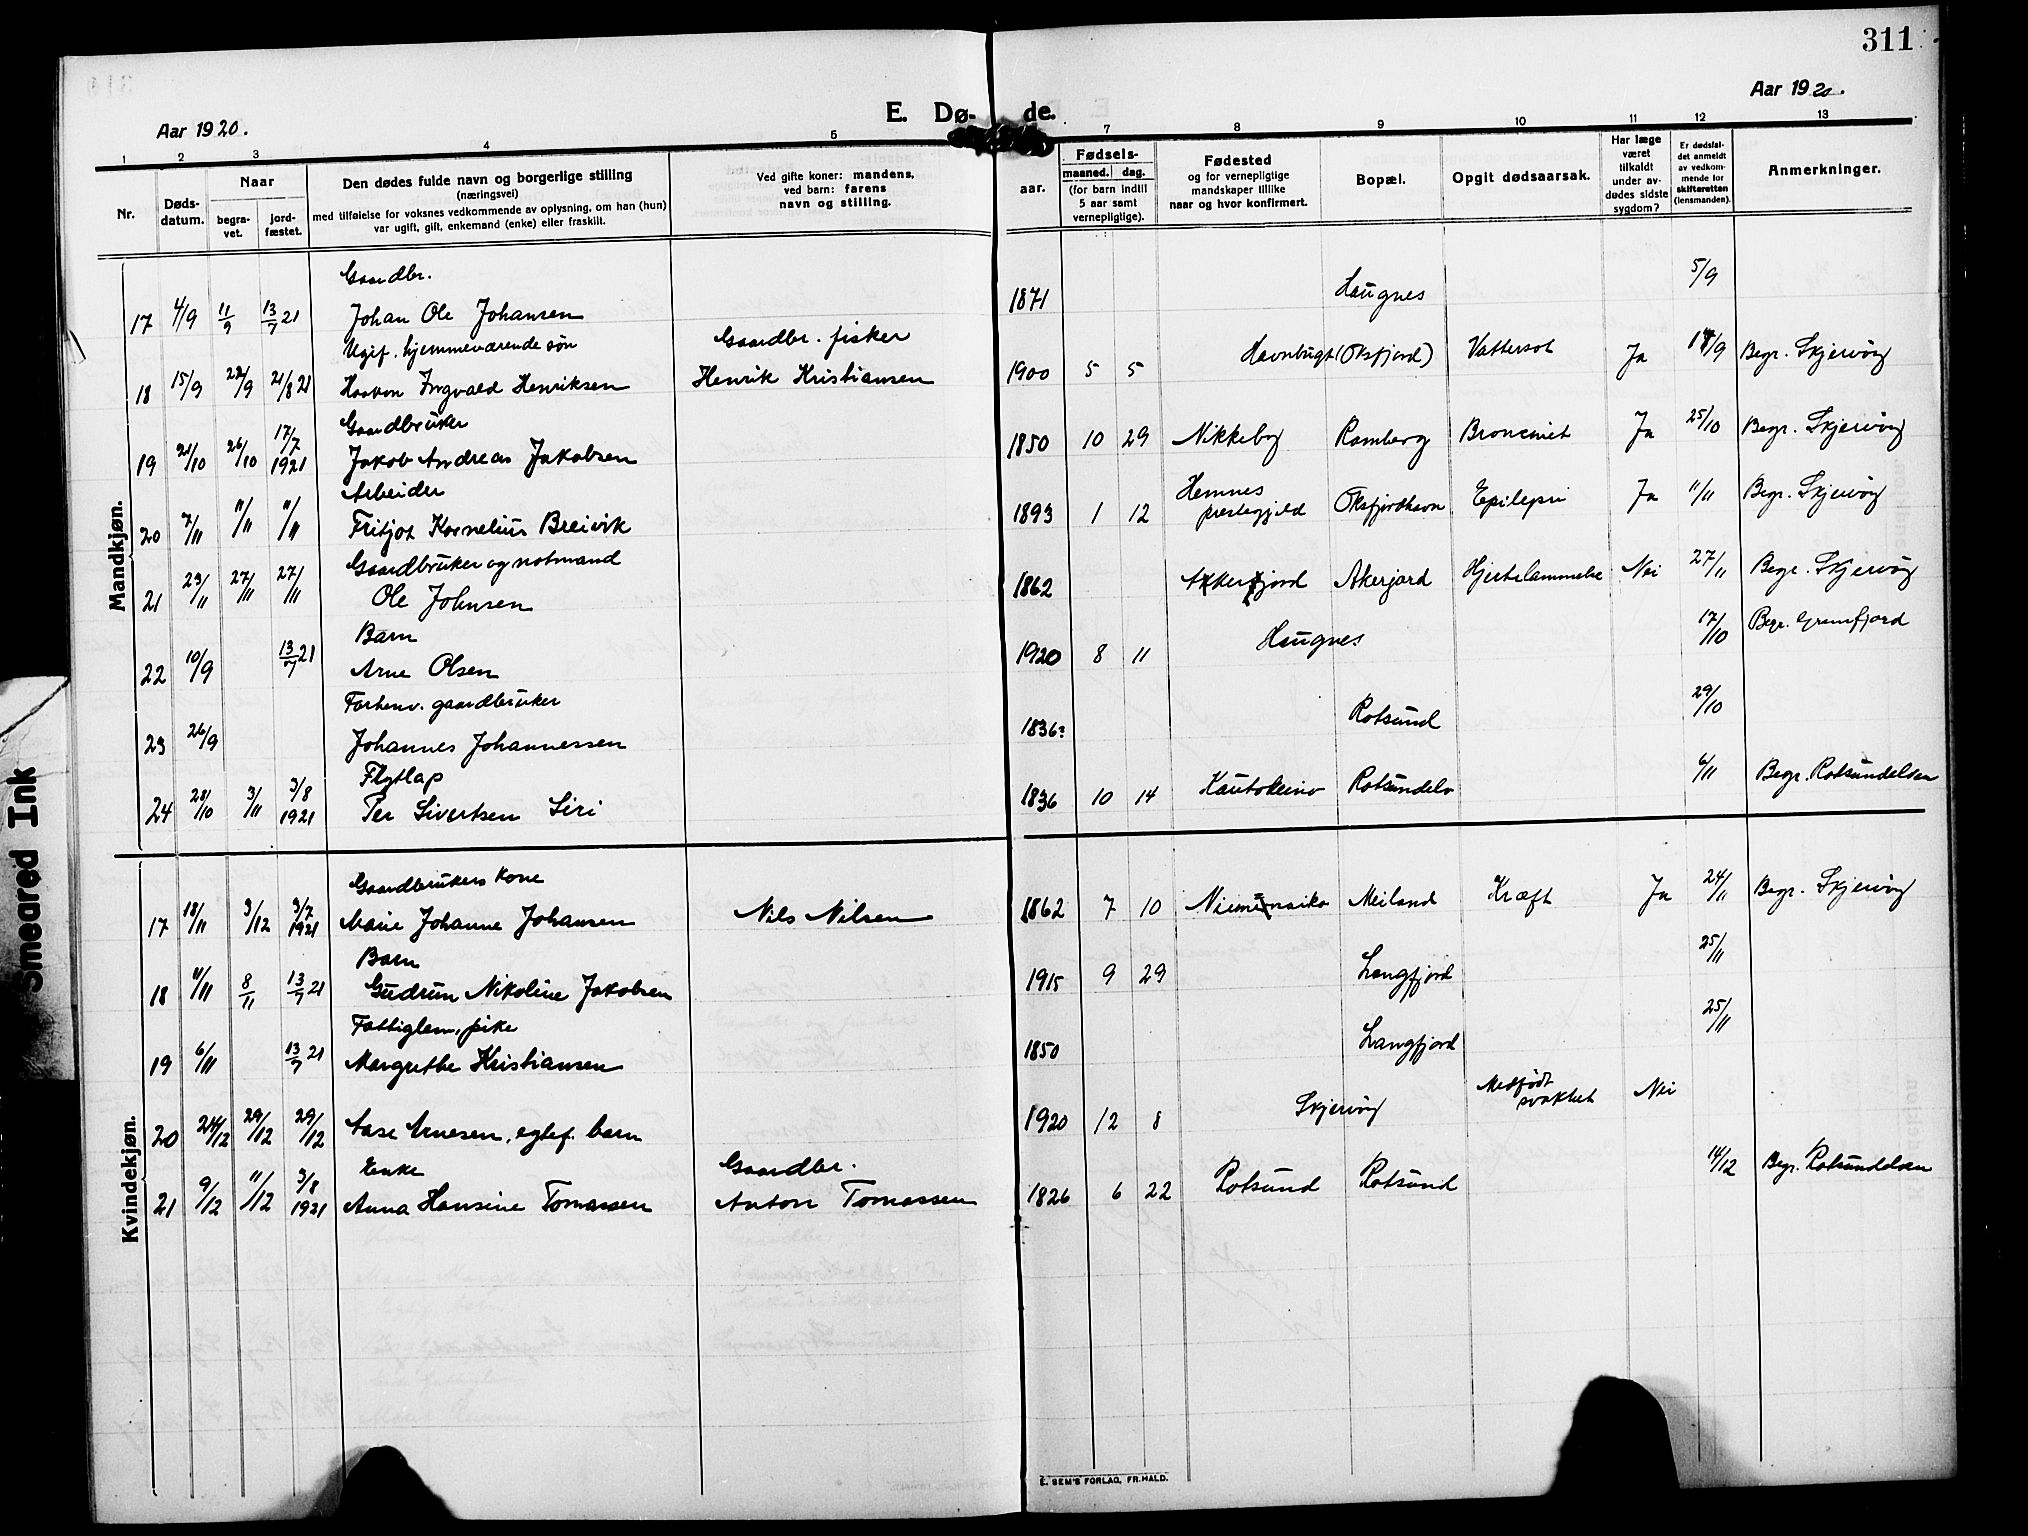 311
Aar 1920.
E. Dø-
de.
Aar 1920.
1 2 3 4 5 7 8 9 10 11 12 13
Nr.
Døds-
datum.
Naar
begra-
vet.
jord-
fæstet.
Den dødes fulde navn og borgerlige stilling
(næringsvei)
med tilføielse for voksnes vedkommende av oplysning, om han (hun)
var ugift, gift, enkemand (enke) eller fraskilt.
Ved gifte koner: mandens,
ved barn: farens
navn og stilling.
Fødsels-
aar.
maaned. dag.
(for barn indtil
5 aar samt
vernepligtige).
Fødested
og for vernepligtige
mandskaper tillike
naar og hvor konfirmert.
Bopæl.
Opgit dødsaarsak.
Har læge
været
tilkaldt
under av-
dødes sidste
sygdom?
Er dødsfal-
det anmeldt
av vedkom-
mende for
skifteretten
(lensmanden).
Anmerkninger.
Mandkjøn.
Gaardbr.
17 4/9 11/9 13/7 21 Johan Ole Johansen 1871 Haugnes 5/9
Ugif. hjemmeværende søn Gaardbr. fisker
18 15/9 22/9 21/8 21 Haakon Ingvald Henriksen Henrik Kristiansen 1900 5 5 Havnbugt (Oksfjord) Vattersot Ja 17/9 Begr. Skjervøy
Gaardbruker
19 21/10 26/10 17/7 1921 Jakob Andreas Jakobsen 1850 10 29 Nikkeby Ramberg Broncmit Ja 25/10 Begr. Skjervøy
Arbeider
20 7/11 11/11 11/11 Fritjof Kornelius Breivik 1893 1 12 Hemnes prestegjeld Oksfjordhavn Epilepsi Ja 11/11 Begr. Skjervøy
Gaardbruker og notmand
21 23/11 27/11 27/11 Ole Johnsen 1862 Akkerfjord Akerjord Hjertelammelse Nei 27/11 Begr. Skjervøy
Barn
22 10/9 13/7 21 Arne Olsen 1920 8 11 Haugnes 17/10 Begr.
Forhenv. gaardbruker
23 26/9 Johannes Johannessen 1836? Rotsund 29/10
Flytlap
24 28/10 3/11 3/8 1921 Per Sivertsen Siri 1836 10 14 Kautokeino Rotsundelv 6/11 Begr. Rotsundelven
Kvindekjøn.
Gaardbrukers kone
17 18/11 3/12 3/7 1921 Marie Johanne Johansen Nils Nilsen 1862 7 10 Meiland Kræft Ja 24/11 Begr. Skjervøy
Barn
18 4/11 8/11 13/7 21 Gudrun Nikoline Jakobsen 1915 9 29 Langfjord 25/11
Fattiglem, pike
19 6/11 13/7 21 Margrethe Kristiansen 1850 Langfjord 25/11
20 24/12 29/12 29/12 Aase Arnesen, egtef. barn 1920 12 8 Skjervøy Medfødt svakhet Nei
Enke Gaardbr.
21 9/12 11/12 3/8 1921 Anna Hansine Tomassen Anton Tomassen 1826 6 22 Rotsund Rotsund 14/12 Begr. Rotsundelven
E. SEM'S FORLAG, FR.HALD.
Smeared Ink